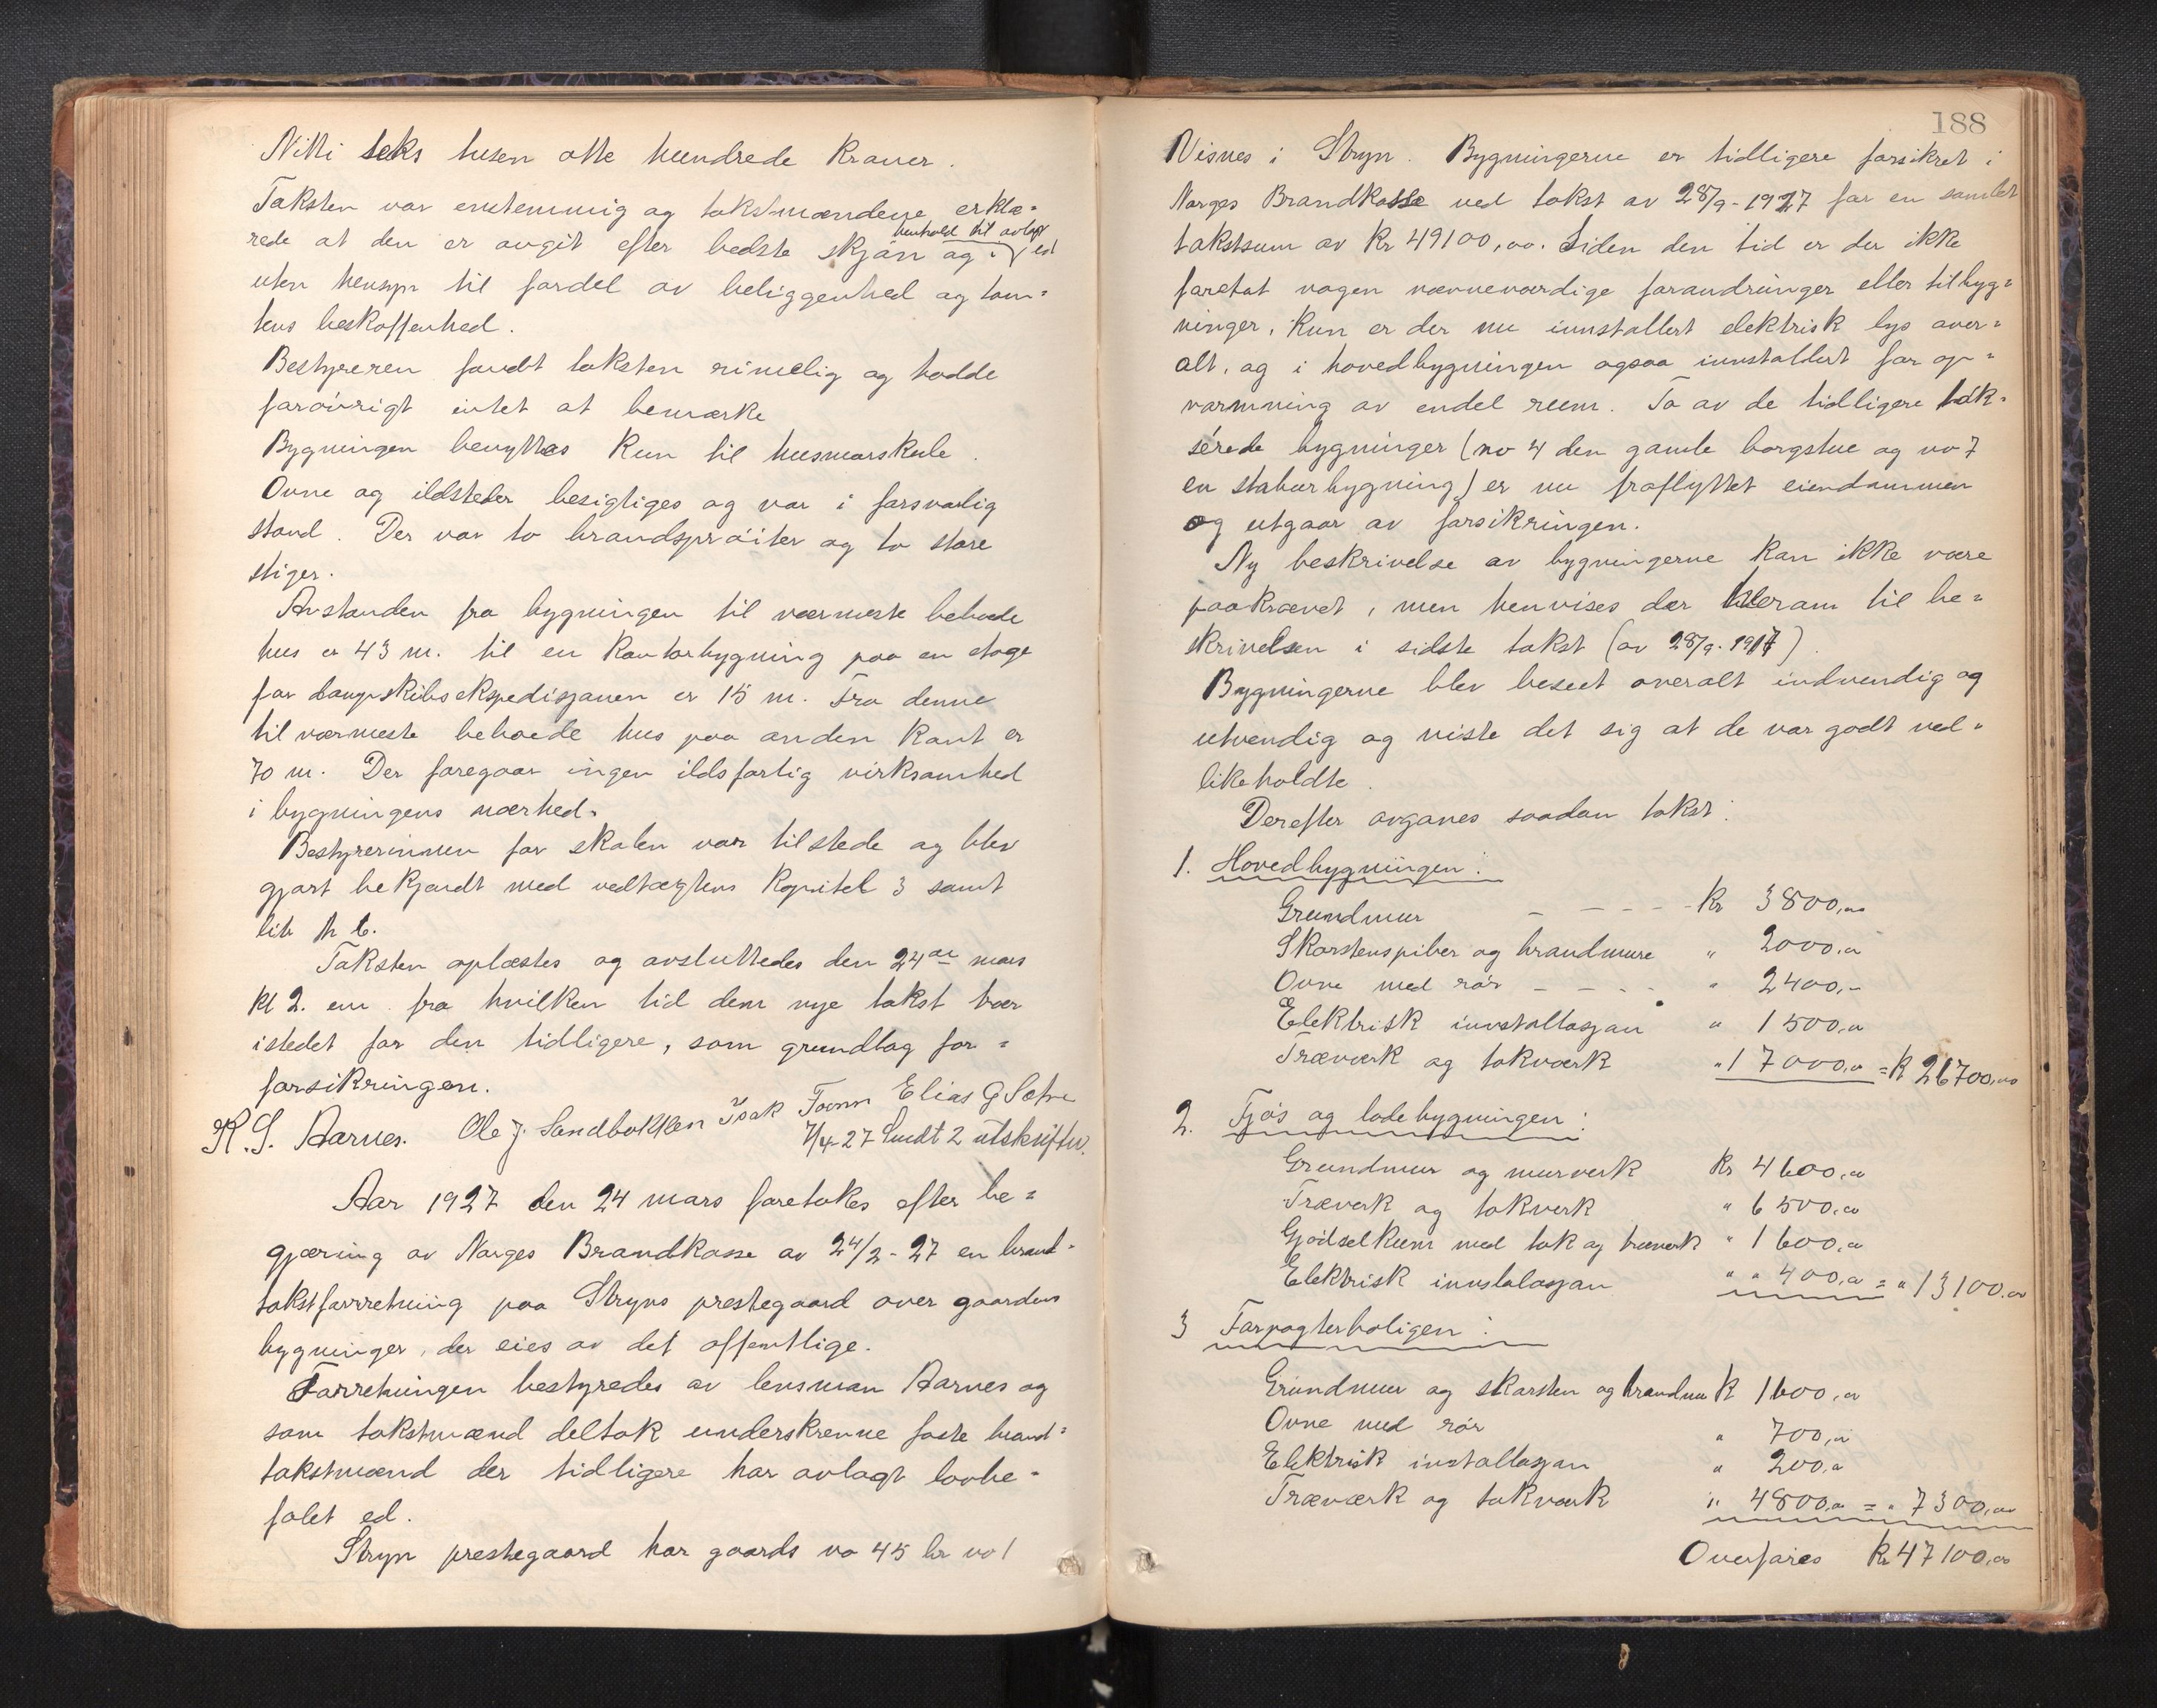 Nitti seks tusen otte hundrede kroner.
Taksten var enstemmig og takstmændene erklæ=
rede at den er avgit efter bedste skjøn og i henhold til avlagt ed
uten hensyn til fordel av beliggenhed og tom=
tens beskaffenhed.
Bestyreren fandt taksten rimelig og hadde
forøvrigt intet at bemærke
Bygningen benyttes kun til husmorskule.
Ovne og ildsteder besigtiges og var i forsvarlig
stand. Der var to brandsprøiter og to store
stiger.
Avstanden fra bygningen til nærmeste beboede
hus er 43 m. til en kontorbygning paa en etage
for dampskibsekspedisjonen er 15 m. Fra denne
til nærmeste beboede hus paa anden kant er
70 m. Der foregaar ingen ildsfarlig virksomhed
i bygningens nærhed.
Bestyrerinnen for skolen var tilstede og blev
gjort bekjendt med vedtægtens kapitel 3 samt
lit
Taksten oplæstes og avsluttedes den 24de mars
kl 2. em. fra hvilken tid dem nye takst trær
istedet for den tidligere, som grundlag for=
forsikringen.
R. S. Aarnes. Ole J. Sandbakken Isak Tonn Elias G Sætre
7/4-27 Sendt 2 utskrifter.
Aar 1927 den 24 mars foretokes efter be=
gjæring av Norges Brandkasse av 24/2-27 en brand=
takstforretning paa Stryns prestegaard over gaardens
bygninger, der eies av det offentlige.
Forretningen bestyredes av lensman Aarnes og
som takstmænd deltok underskrevne faste brand=
takstmænd der tidligere har avlagt lovbe=
falet ed.
Stryn prestegaard har gaards no 45 br no 1
188
Visnes i Stryn. Bygningerne er tidligere forsikret i
Norges Brandkasse ved takst av 28/9-1927 for en samlet
takstsum av Kr 49100,00. Siden den tid er der ikke
foretat nogen nævneværdige forandringer eller tilbyg=
ninger. Kun er der nu innstallert elektrisk lys over=
alt, og i hovedbygningen ogsaa innstallert for op=
varmning av endel rum. To av de tidligere tak=
serede bygninger (no 4 den gamle borgstue og no 7
en staburbygning) er nu fraflyttet eiendommen
og utgaar av forsikringen.
Ny beskrivelse av bygningerne kan ikke være
paakrævet, men henvises der herom til be=
skrivelsen i sidste takst (av 28/9-1917).
Bygningerne blev beseet overalt indvendig og
utvendig og viste det sig at de var godt ved=
likeholdte.
Derefter avgaves saadan takst:
1. Hovedbygningen:
Grundmur - - - - - Kr 3800,00
Skorstenspiber og brandmure " 2000,00
Ovne med rør - - - - " 2400,-
Elektrisk innstallasjon " 1500,00
Træverk og takværk " 17000,00 = K 26700,00
2. Fjøs og ladebygningen:
Grundmur og murverk Kr 4600,00
Træverk og takverk " 6500,00
Gjødselkum med tak og træverk " 1600,00
Elektrisk innstalasjon " " 400,00 = " 13100,00
3 Forpagterboligen:
Grundmur og skorsten og brandmu K 1600,00
Ovne med rør " 700,00
Elektrisk installasjon " 200,00
Træværk og takværk " 4800,00 = " 7300,00
Overføres Kr 47100,00